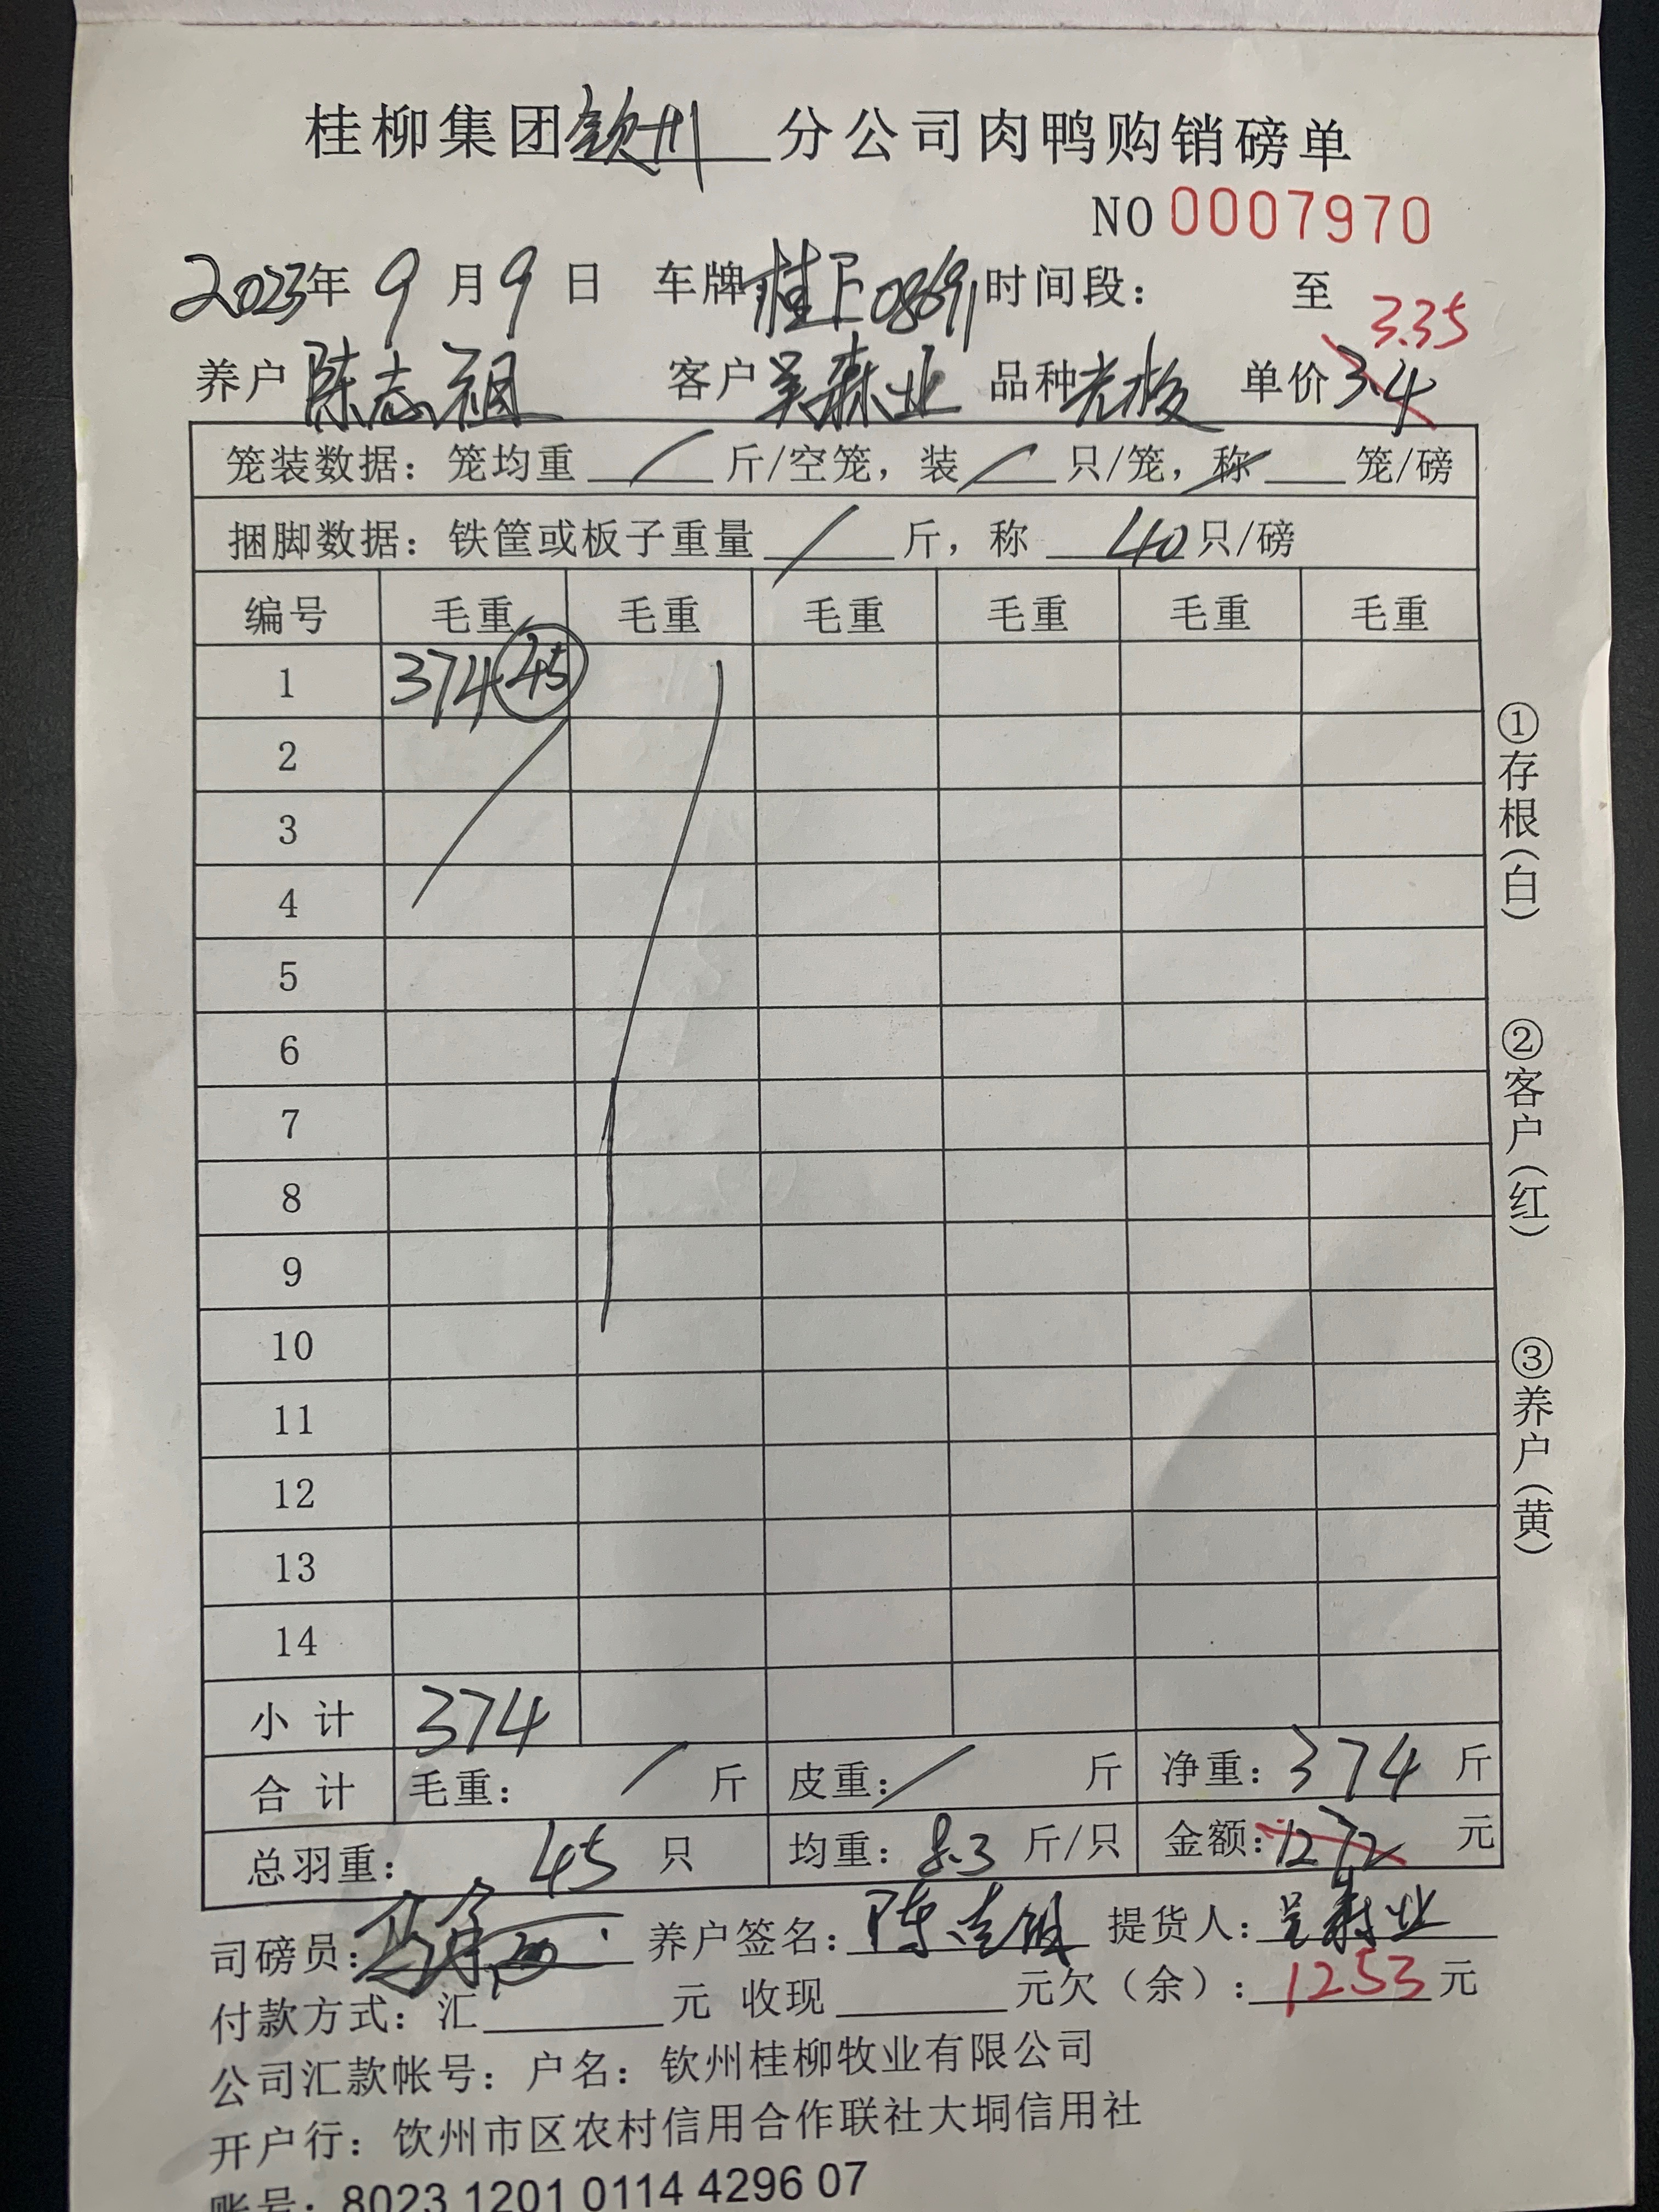 桂柳集团钦州分公司肉鸭购销磅单
NO 0007970
2023年9月9日 车牌 时间段： 至
3.35
养户 陈志祖 客户 吴森业 品种 老板 单价 3.4
笼装数据：笼均重 / 斤/空笼，装 / 只/笼，称 笼/磅
捆脚数据：铁筐或板子重量 / 斤，称 40只/磅
编号 毛重 毛重 毛重 毛重 毛重 毛重
1 374 45
2
3
4
5
6
7
8
9
10
11
12
13
14
小计 374
合计 毛重： / 斤 皮重： / 斤 净重：374 斤
总羽重： 45 只 均重：8.3 斤/只 金额：1272 元
司磅员： 养户签名：陈志 提货人：吴森业
付款方式：汇 元 收现 元欠（余）：1253元
公司汇款帐号：户名：钦州桂柳牧业有限公司
开户行：钦州市区农村信用合作联社大垌信用社
账号：8023 1201 0114 4296 07
①存根（白）
②客户（红）
③养户（黄）